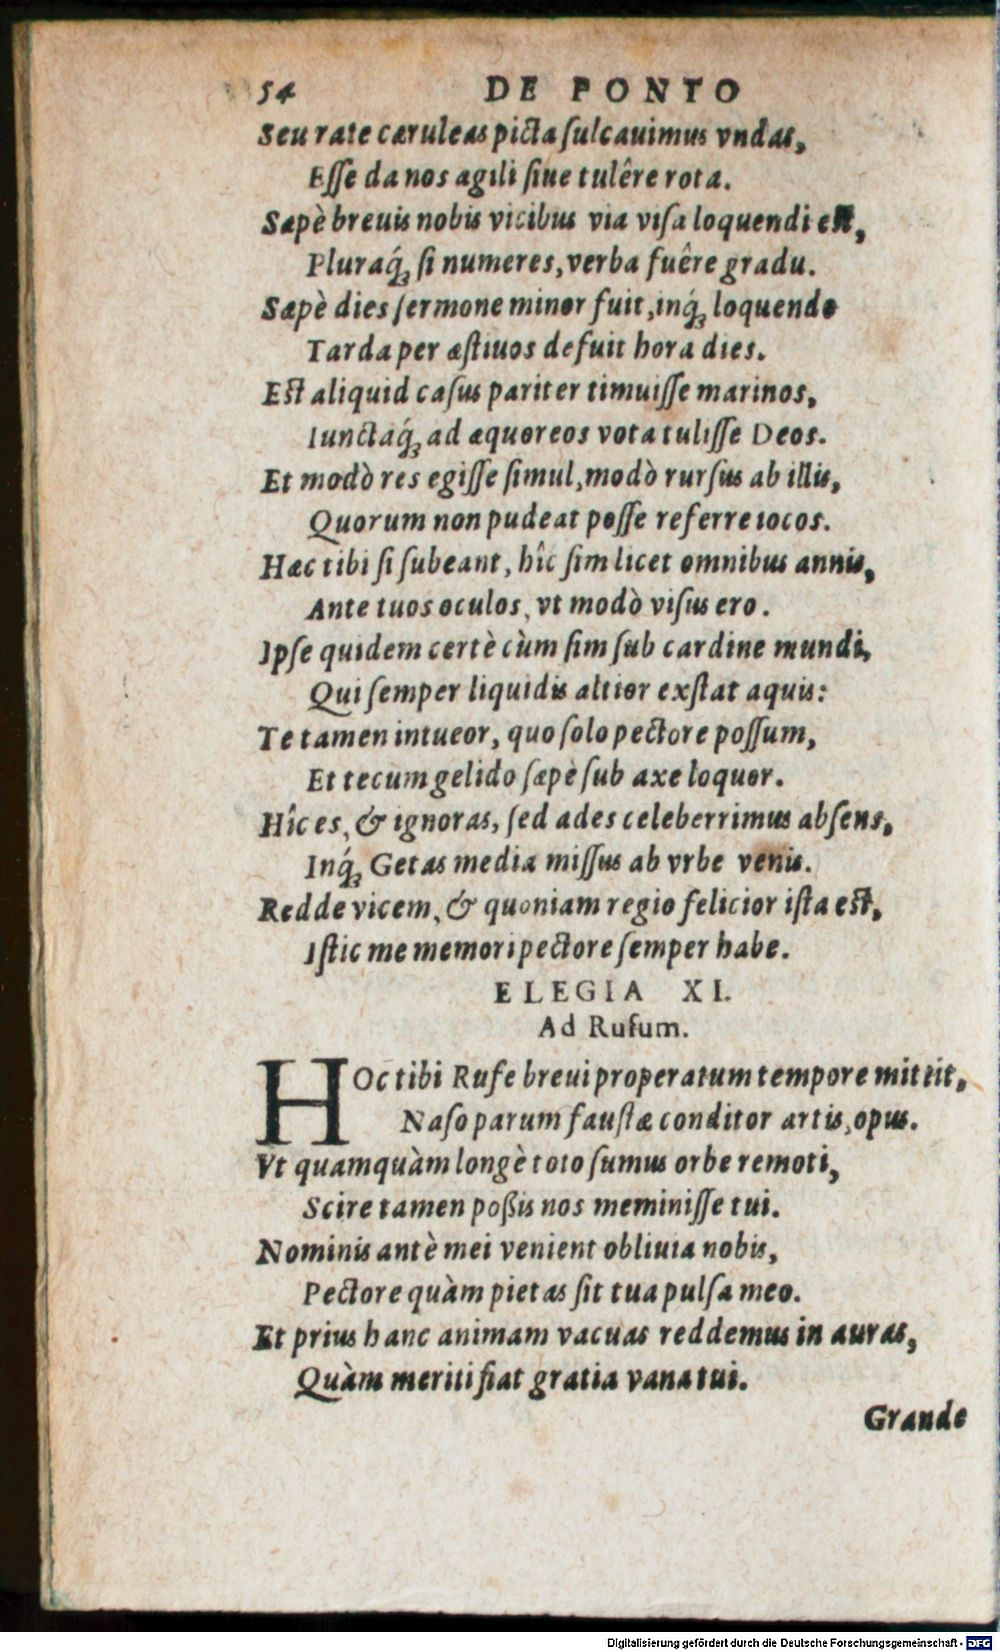 54 DE PONTO
Seu rate cæruleas picta sulcauimus vndas,
Esse da nos agili siue tulêre rota.
Sæpè breuis nobis vicibus via visa loquendi est,
Pluraq́ꝫ si numeres, verba fuêre gradu.
Sæpè dies sermone minor fuit, inq́ꝫ loquendo
Tarda per æstiuos defuit hora dies.
Est aliquid casus pariter timuisse marinos,
Iunctaq́ꝫ ad æquoreos vota tulisse Deos.
Et modò res egisse simul, modò rursus ab illis,
Quorum non pudeat posse referre iocos.
Hæc tibi si subeant, hîc sim licet omnibus annis,
Ante tuos oculos, vt modò visus ero.
Ipse quidem certè cùm sim sub cardine mundi,
Qui semper liquidis altior exstat aquis:
Te tamen intueor, quo solo pectore possum,
Et tecum gelido sæpè sub axe loquor.
Hîc es, & ignoras, sed ades celeberrimus absens,
Inq́ꝫ Getas media missus ab vrbe venis.
Redde vicem, & quoniam regio felicior ista est,
Istic me memori pectore semper habe.
ELEGIA XI.
Ad Rufum.
HOc tibi Rufe breui properatum tempore mittit,
Naso parum faustæ conditor artis, opus.
Vt quamquàm longè toto sumus orbe remoti,
Scire tamen poßis nos meminisse tui.
Nominis antè mei venient obliuia nobis,
Pectore quàm pietas sit tua pulsa meo.
Et prius hanc animam vacuas reddemus in auras,
Quàm meriti fiat gratia vana tui.
Grande
Digitalisierung gefördert durch die Deutsche Forschungsgemeinschaft - DFG